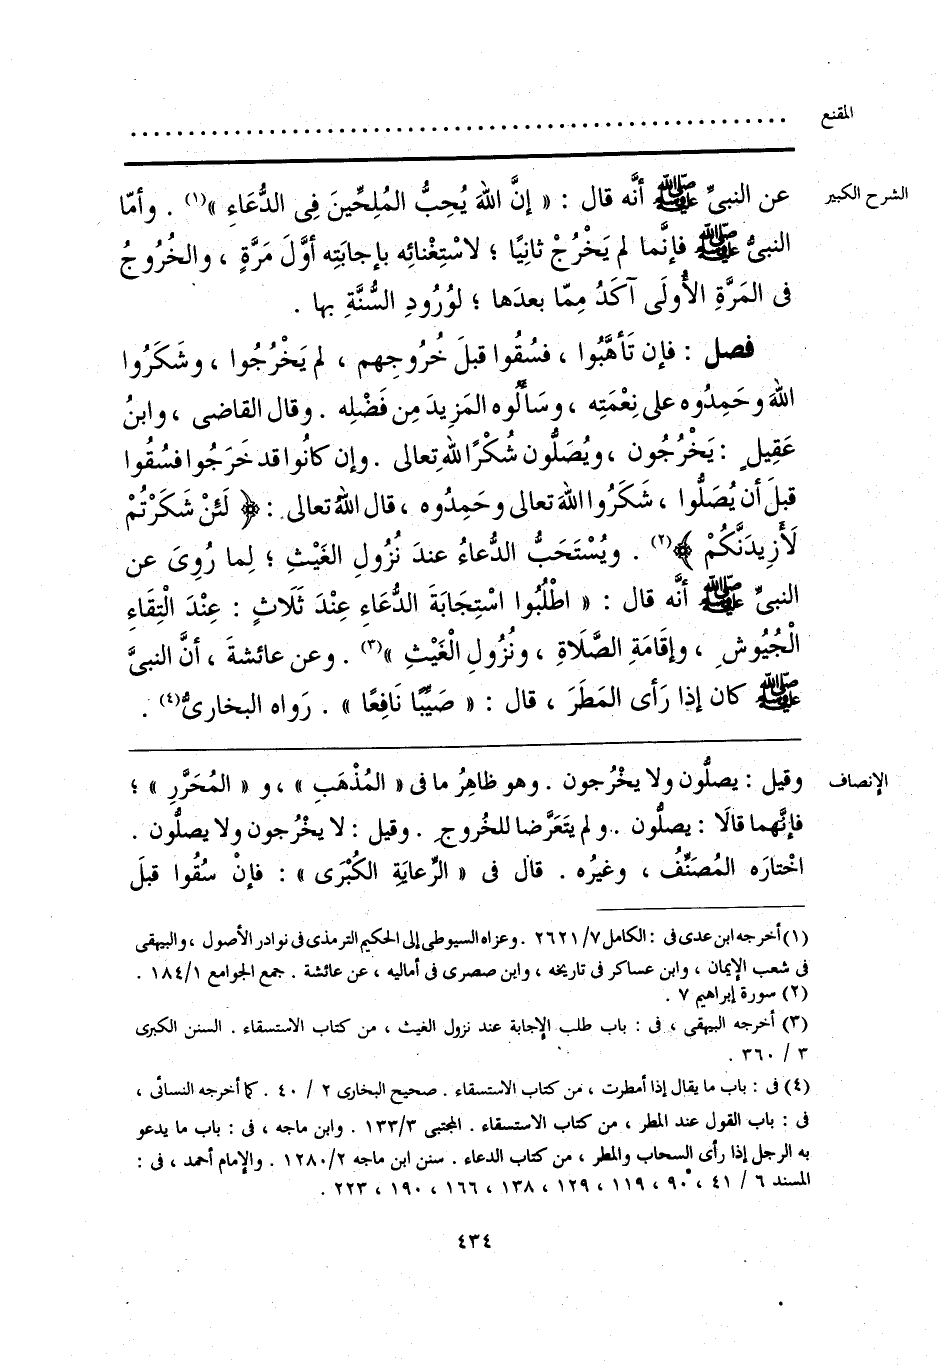 المقنع ............................................................
الشرح الكبير عن النبىِّ ﷺ أنَّه قال : « إنَّ اللهَ يُحِبُّ المُلِحِّينَ فِى الدُّعَاءِ »(١) . وأمَّا
النبىُّ ﷺ فإنَّما لم يَخْرُجْ ثانِيًا ؛ لاسْتِغْنائِه بإجابَتِه أوَّلَ مَرَّةٍ ، والخُرُوجُ
فى المَرَّةِ الأُولَى آكَدُ مِمّا بعدَها ؛ لوُرُودِ السُّنَّةِ بها .
فصل : فإن تَأهَّبُوا ، فسُقُوا قبلَ خُرُوجِهم ، لم يَخْرُجُوا ، وشَكَرُوا
اللهَ وحَمِدُوه على نِعْمَتِه ، وسَألُوه المَزِيدَ مِن فَضْلِه . وقال القاضى ، وابنُ
عَقِيلٍ : يَخْرُجُون ، ويُصَلُّون شُكْرًا للهِ تعالى . وإن كانُوا قد خَرَجُوا فسُقُوا
قبلَ أن يُصَلُّوا ، شَكَرُوا اللهَ تعالى وحَمِدُوه ، قال اللهُ تعالى : ﴿ لَئنْ شَكَرْتُمْ
لَأَزِيدَنَّكُمْ ﴾(٢) . ويُسْتَحَبُّ الدُّعاءُ عندَ نُزُولِ الغَيْثِ ؛ لِما رُوِىَ عن
النبىِّ ﷺ أنَّه قال : « اطْلُبُوا اسْتِجَابَةَ الدُّعَاءِ عِنْدَ ثَلَاثٍ : عِنْدَ الْتِقَاءِ
الْجُيُوشِ ، وإقَامَةِ الصَّلَاةِ ، ونُزُولِ الْغَيْثِ »(٣) . وعن عائشةَ ، أنَّ النبىَّ
ﷺ كان إذا رَأى المَطَرَ ، قال : « صَيِّبًا نَافِعًا » . رَواه البخارىُّ(٤) .
الإنصاف وقيل : يصلُّون ولا يخْرُجون . وهو ظاهِرُ ما فى « المُذْهَبِ » ، و « المُحَرَّرِ » ؛
فإنَّهما قالَا : يصلُّون . ولم يَتَعَرَّضا للخُروجِ . وقيل : لا يخْرُجون ولا يصلُّون .
اخْتارَه المُصَنِّفُ ، وغيرُه . قال فى « الرِّعايَةِ الكُبْرَى » : فإنْ سُقُوا قبلَ
(١) أخرجه ابن عدى فى : الكامل ٢٦٢١/٧ . وعزاه السيوطى إلى الحكيم الترمذى فى نوادر الأصول ، والبيهقى
فى شعب الإيمان ، وابن عساكر فى تاريخه ، وابن صصرى فى أماليه ، عن عائشة . جمع الجوامع ١٨٤/١ .
(٢) سورة إبراهيم ٧ .
(٣) أخرجه البيهقى ، فى : باب طلب الإجابة عند نزول الغيث ، من كتاب الاستسقاء . السنن الكبرى
٣ / ٣٦٠ .
(٤) فى : باب ما يقال إذا أمطرت ، من كتاب الاستسقاء . صحيح البخارى ٢ / ٤٠ . كما أخرجه النسائى ،
فى : باب القول عند المطر ، من كتاب الاستسقاء . المجتبى ١٣٣/٣ . وابن ماجه ، فى : باب ما يدعو
به الرجل إذا رأى السحاب والمطر ، من كتاب الدعاء . سنن ابن ماجه ١٢٨٠/٢ . والإمام أحمد ، فى :
المسند ٦ / ٤١ ، ٩٠ ، ١١٩ ، ١٢٩ ، ١٣٨ ، ١٦٦ ، ١٩٠ ، ٢٢٣ .
٤٣٤